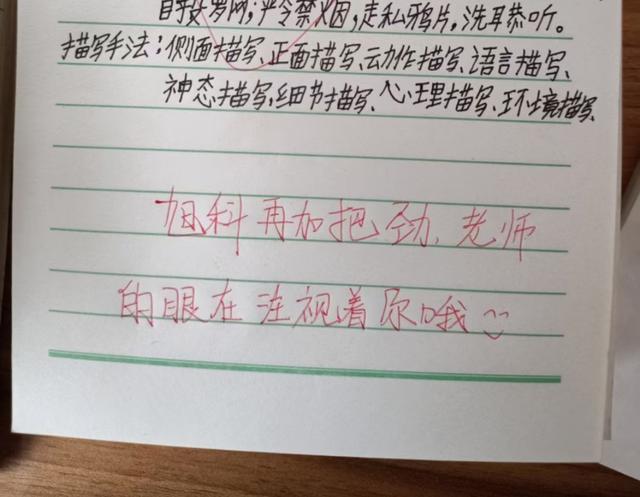 自投罗网，严令禁烟，走私鸦片，洗耳恭听。
描写手法：侧面描写、正面描写、动作描写、语言描写、
神态描写，细节描写、心理描写、环境描写、
旭科再加把劲，老师
的眼在注视着你哦